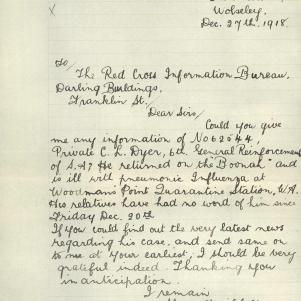 Wolseley.
Dec. 27th, 1918.
To/
The Red Cross Information Bureau.
Darling Buildings.
Franklin St.
Dear Sirs,
Could you give
me any information of No 62544
Private C. L. Dyer, 6th. General Reinforcements
of S.A? He returned on the "Boonah" and
is ill with pneumonic Influenza at
Woodman's Point Quarantine Station, W.A.
His relatives have had no word of him since
Friday Dec. 20th
If you could find out the very latest news
regarding his case, and send same on
to me at your earliest, I should be very
grateful indeed. Thanking you
in anticipation.
I remain